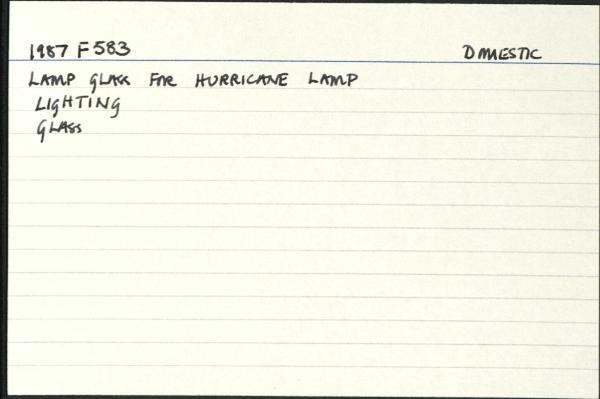 1987 F583 DOMESTIC
LAMP GLASS FOR HURRICANE LAMP
LIGHTING
GLASS